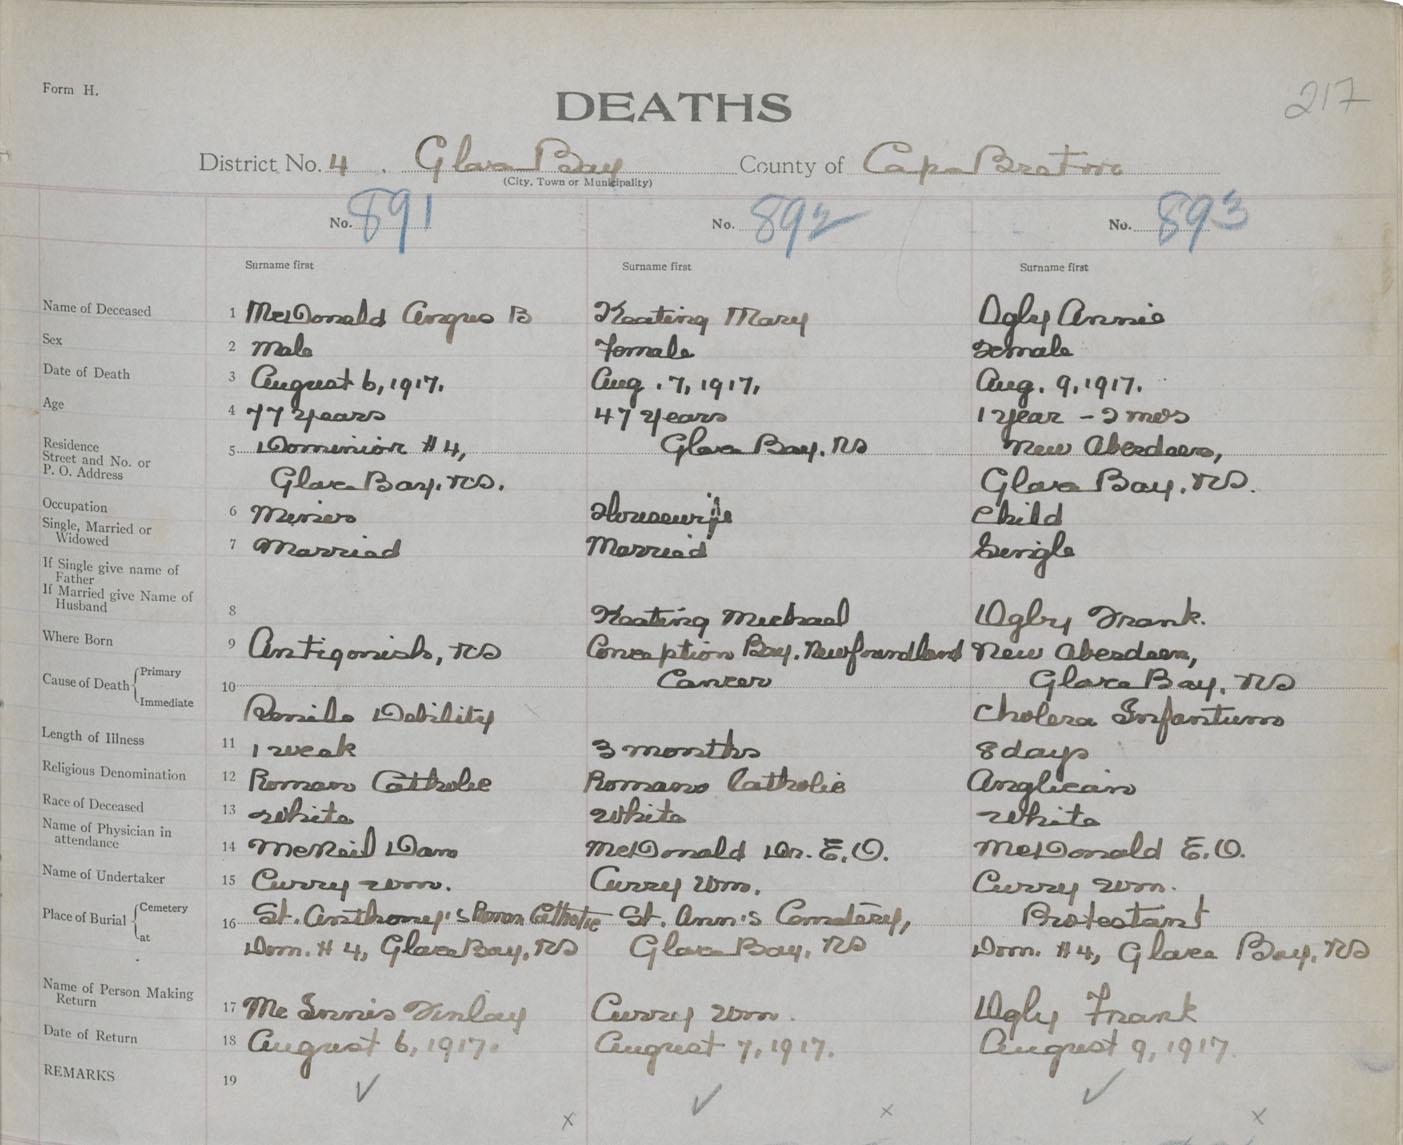 Form H.
217
DEATHS
District No. 4. Glace Bay County of Cape Breton
(City, Town or Municipality)
No. 891 No. 892 No. 893
Surname first Surname first Surname first
Name of Deceased 1 McDonald Angus B Keating Mary Ogly Annie
Sex 2 Male Female Female
Date of Death 3 August 6, 1917. Aug. 7, 1917. Aug. 9, 1917.
Age 4 77 years 47 years 1 year - 2 mos
Residence
Street and No. or
P. O. Address 5 Dominion #4, Glace Bay, NS New Aberdeen,
Glace Bay, NS. Glace Bay, NS.
Occupation 6 Miner Housewife Child
Single, Married or
Widowed 7 Married Married Single
If Single give name of
Father
If Married give Name of
Husband 8 Keating Michael Frank.
Where Born 9 Antigonish, NS Conception Bay, Newfoundland New Aberdeen,
Cause of Death Primary 10 Cancer Glace Bay, NS
Immediate Senile Debility Cholera Infantum
Length of Illness 11 1 week 3 months 8 days
Religious Denomination 12 Roman Catholic Roman Catholic Anglican
Race of Deceased 13 White White White
Name of Physician in
attendance 14 McNeil Dan McDonald Dr. E.O. McDonald E.O.
Name of Undertaker 15 Curry Wm. Curry Wm. Curry Wm.
Place of Burial Cemetery 16 St. Anthony's Roman Catholic St. Ann's Cemetery, Protestant
at Dom. #4, Glace Bay, NS Glace Bay, NS Dom. #4, Glace Bay, NS
Name of Person Making
Return 17 McInnis Finlay Curry Wm. Ogly Frank
Date of Return 18 August 6, 1917. August 7, 1917. August 9, 1917.
REMARKS 19